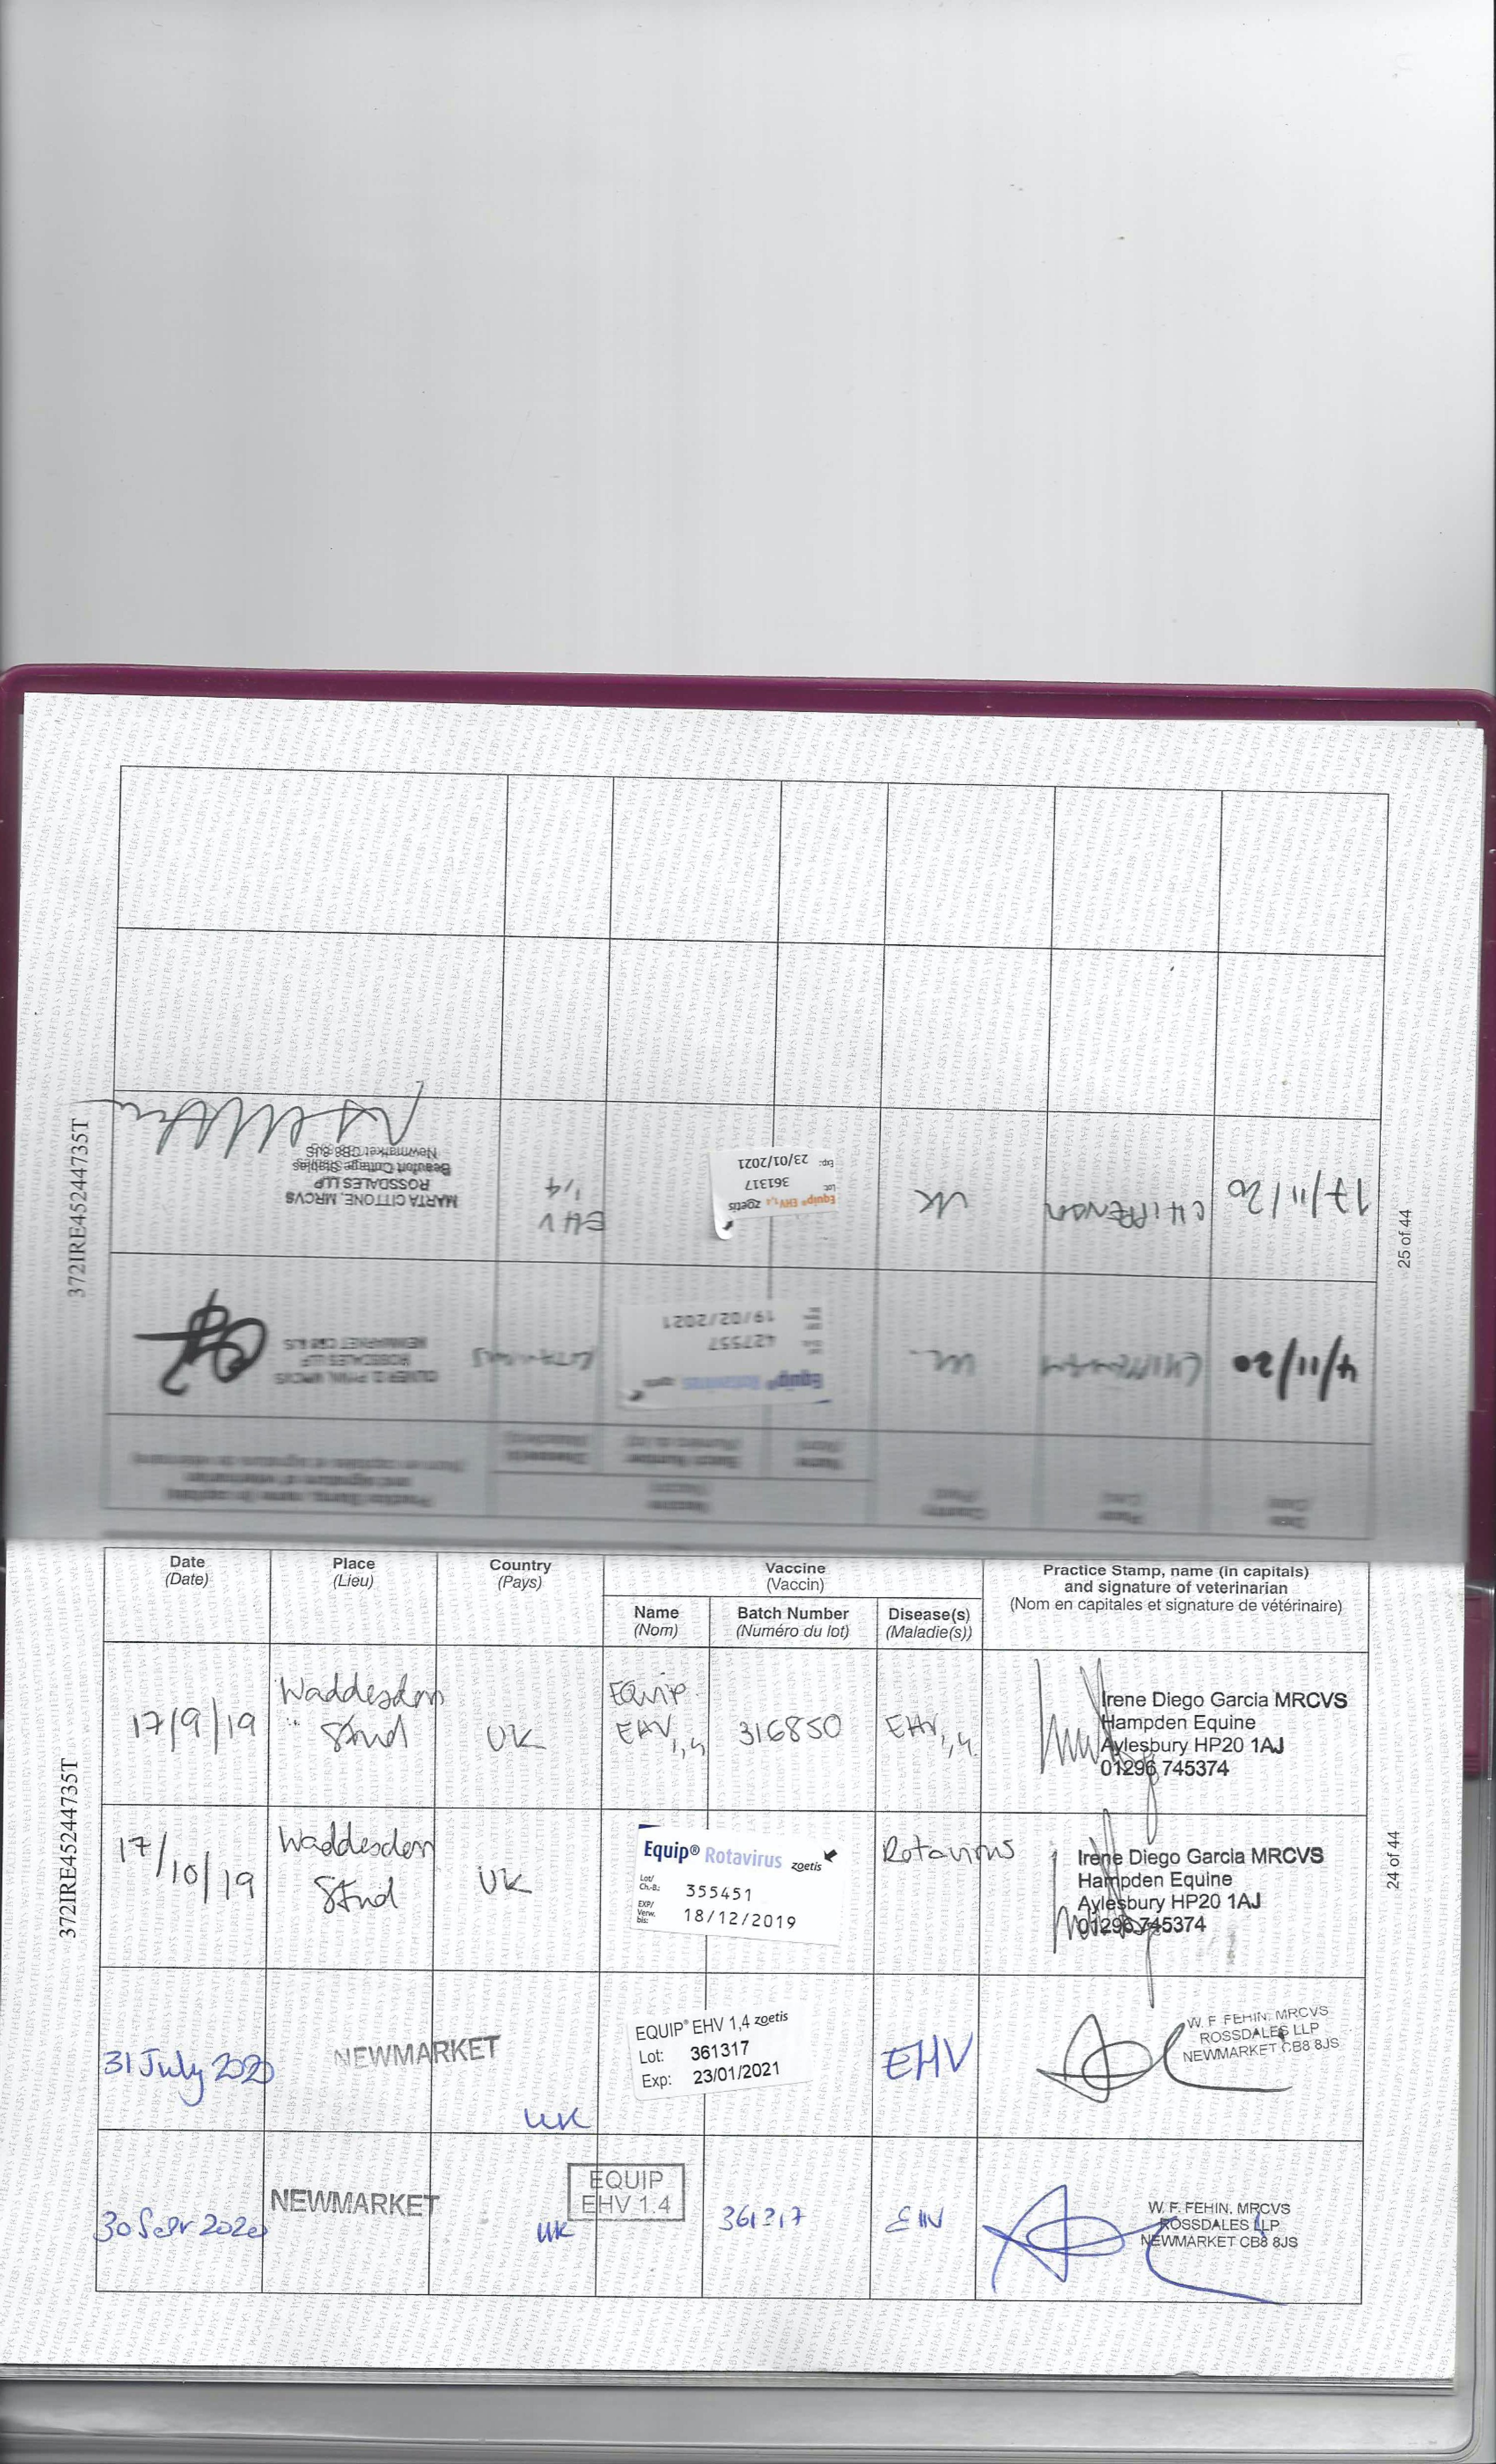 372IRE45244735T
24 of 44
Date
(Date)
Place
(Lieu)
Country
(Pays)
Vaccine
(Vaccin)
Name
(Nom)
Batch Number
(Numéro du lot)
Disease(s)
(Maladie(s))
Practice Stamp, name (in capitals)
and signature of veterinarian
(Nom en capitales et signature de vétérinaire)
17/9/19
Waddesdon
Stud
UK
Equip
EHV 1,4
316850
EHV 1,4
Irene Diego Garcia MRCVS
Hampden Equine
Aylesbury HP20 1AJ
01296 745374
17/10/19
Waddesdon
Stud
UK
Equip® Rotavirus zoetis
Lot/
Ch.-B.: 355451
EXP/
Verw.
bis: 18/12/2019
Rotavirus
Irene Diego Garcia MRCVS
Hampden Equine
Aylesbury HP20 1AJ
01296 745374
31 July 2020
NEWMARKET
UK
EQUIP® EHV 1,4 zoetis
Lot: 361317
Exp: 23/01/2021
EHV
W. F FEHIN. MRCVS
ROSSDALES LLP
NEWMARKET CB8 8JS
30 Sepr 2020
NEWMARKET
UK
EQUIP
EHV 1.4
361317
EHV
W. F. FEHIN. MRCVS
ROSSDALES LLP
NEWMARKET CB8 8JS
372IRE45244735T
25 of 44
Date
Place
Country
Vaccine
Name
Batch Number
(Numéro du lot)
Disease(s)
Practice Stamp, name (in capitals)
and signature of veterinarian
(Nom en capitales et signature de vétérinaire)
4/11/20
CHIPPENHAM
UK
Equip® Rotavirus zoetis
427557
19/02/2021
ROTAVIRUS
OLIVER D. PYNN, MRCVS
ROSSDALES LLP
NEWMARKET CB8 8JS
17/11/20
UK
Equip® EHV 1,4 zoetis
Lot: 361317
Exp: 23/01/2021
EHV
1,4
MARTA CITTONE, MRCVS
ROSSDALES LLP
Beaufort Cottage Stables
Newmarket CB8 8JS